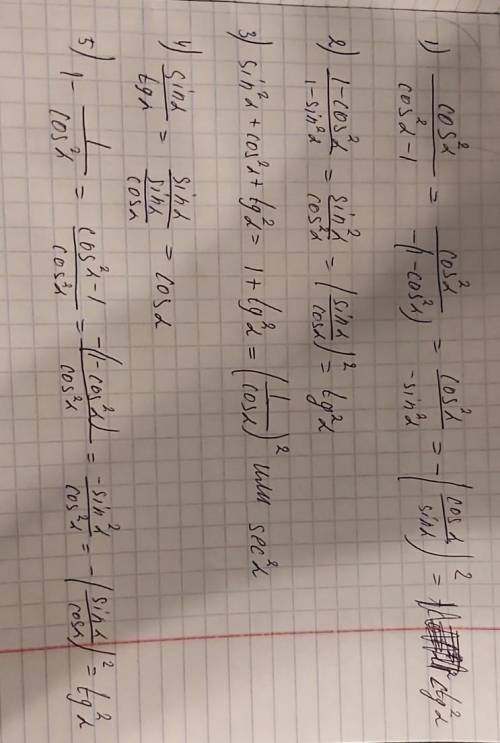 1) cos²α / cos²α-1 = cos²α / -(1-cos²α) = cos²α / -sin²α = -(cosα / sinα)² = ctg²α
2) 1-cos²α / 1-sin²α = sin²α / cos²α = (sinα / cosα)² = tg²α
3) sin²α + cos²α + tg²α = 1 + tg²α = (1 / cosα)² или sec²α
4) sinα / tgα = sinα / sinα / cosα = cosα
5) 1 - 1 / cos²α = cos²α-1 / cos²α = -(1-cos²α) / cos²α = -sin²α / cos²α = -(sinα / cosα)² = tg²α